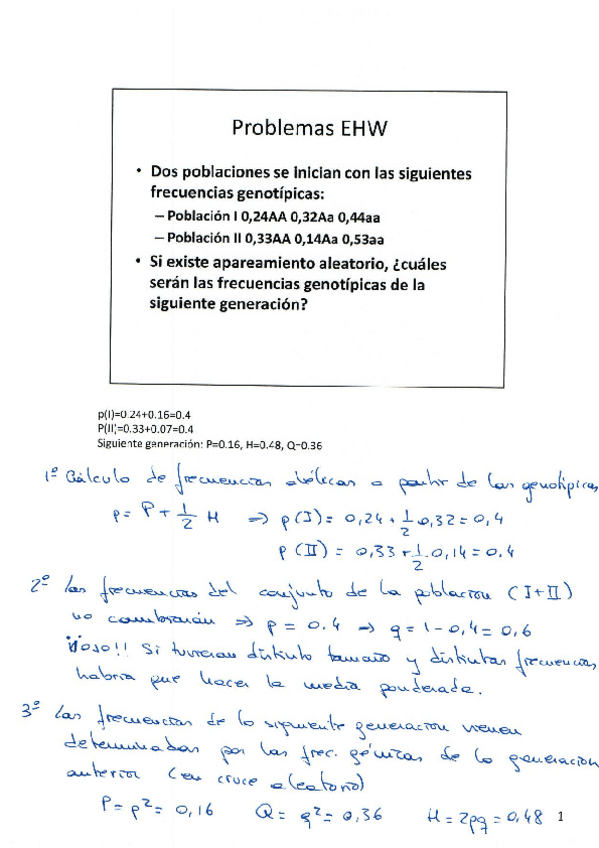 Problemas EHW
• Dos poblaciones se inician con las siguientes
frecuencias genotípicas:
– Población I 0,24AA 0,32Aa 0,44aa
– Población II 0,33AA 0,14Aa 0,53aa
• Si existe apareamiento aleatorio, ¿cuáles
serán las frecuencias genotípicas de la
siguiente generación?
p(I)=0.24+0.16=0.4
P(II)=0.33+0.07=0.4
Siguiente generación: P=0.16, H=0.48, Q=0.36
1º Cálculo de frecuencias alélicas a partir de las genotípicas
p = P + 1/2 H ⇒ p(I) = 0,24 + 1/2 0,32 = 0,4
p(II) = 0,33 + 1/2 0,14 = 0.4
2º Las frecuencias del conjunto de la población (I+II)
no cambiarán ⇒ p = 0.4 → q = 1 - 0,4 = 0,6
¡¡Ojo!! Si tuvieran distinto tamaño y distintas frecuencias
habría que hacer la media ponderada.
3º Las frecuencias de la siguiente generación vienen
determinadas por las frec. génicas de la generación
anterior (en cruce aleatorio)
P = p² = 0,16 Q = q² = 0,36 H = 2pq = 0,48 1